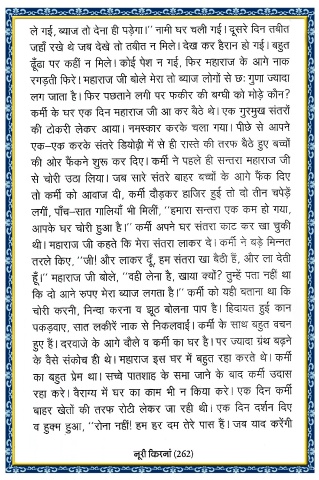 ले गई, ब्याज तो देना ही पड़ेगा।'' नामी घर चली गई। दूसरे दिन तबीत
जहाँ रखे थे जब देखे तो तबीत न मिले। देख कर हैरान हो गई। बहुत
ढूँढा पर कहीं न मिले। कोई पेश न गई, फिर महाराज के आगे नाक
रगड़ती फिरे। महाराज जी बोले मेरा तो ब्याज लोगों से छः गुणा ज्यादा
लग जाता है। फिर पछताने लगी पर फकीर की बग्घी को मोड़े कौन?
कर्मी के घर एक दिन महाराज जी आ कर बैठे थे। एक गुरमुख संतरों
की टोकरी लेकर आया। नमस्कार करके चला गया। पीछे से आपने
एक-एक करके संतरे डियोढ़ी में से ही रास्ते की तरफ बैठे हुए बच्चों
की ओर फैंकने शुरू कर दिए। कर्मी ने पहले ही सन्तरा महाराज जी
से चोरी उठा लिया। जब सारे संतरे बाहर बच्चों के आगे फैंक दिए
तो कर्मी को आवाज दी, कर्मी दौड़कर हाजिर हुई तो दो तीन चपेड़ें
लगीं, पाँच-सात गालियाँ भी मिलीं, ''हमारा सन्तरा एक कम हो गया,
आपके घर चोरी हुआ है।'' कर्मी अपने घर संतरा काट कर खा चुकी
थी। महाराज जी कहते कि मेरा संतरा लाकर दे। कर्मी ने बड़े मिन्नत
तरले किए, ''जी! और लाकर दूँ, हम संतरा खा बैठी हैं, और ला देती
हूँ।'' महाराज जी बोले, ''वही लेना है, खाया क्यों? तुम्हें पता नहीं था
कि दो आने रुपए मेरा ब्याज लगता है।'' कर्मी को यही बताना था कि
चोरी करनी, निन्दा करना व झूठ बोलना पाप है। हिदायत हुई कान
पकड़वाए, सात लकीरें नाक से निकलवाईं। कर्मी के साथ बहुत बचन
हुए हैं। दरवाजे के आगे दौले व कर्मी का घर है। पर ज्यादा ग्रंथ बढ़ने
के वैसे संकोच ही थे। महाराज इस घर में बहुत रहा करते थे। कर्मी
का बहुत प्रेम था। सच्चे पातशाह के समा जाने के बाद कर्मी उदास
रहा करे। वैराग्य में घर का काम भी न किया करे। एक दिन कर्मी
बाहर खेतों की तरफ रोटी लेकर जा रही थी। एक दिन दर्शन दिए
व हुक्म हुआ, ''रोना नहीं! हम हर दम तेरे पास हैं। जब याद करेंगी
नूरी किरनां (262)